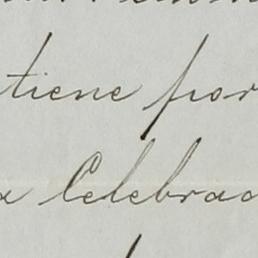 tiene por
a Celebrac